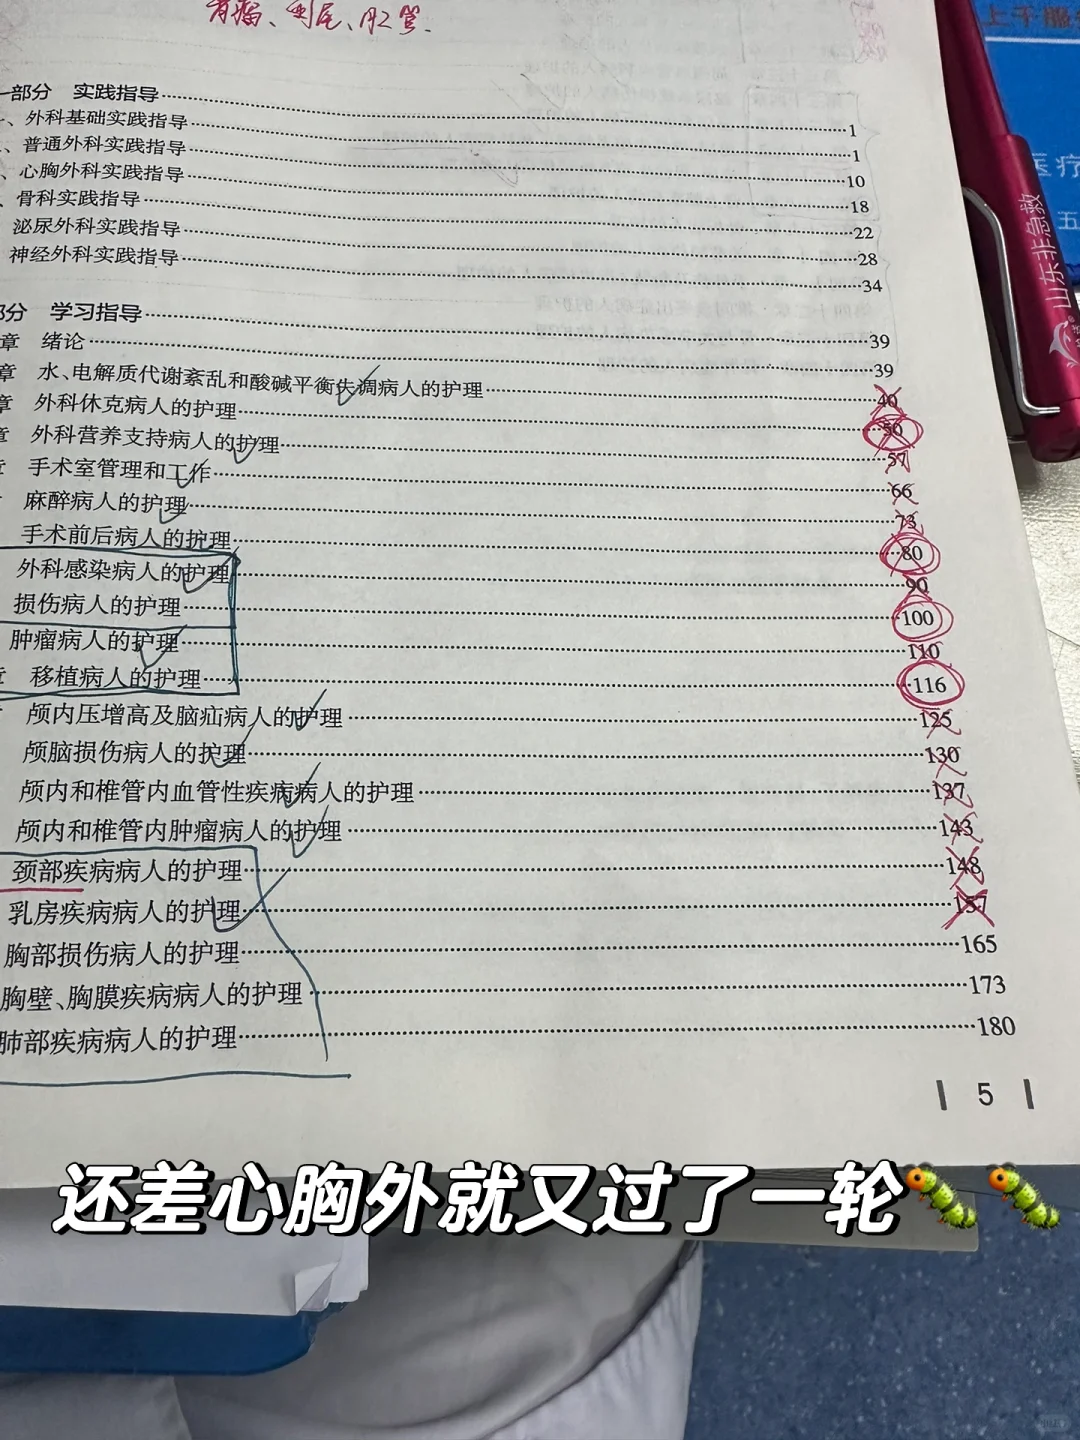 胃癌、阑尾、胆管.
一部分 实践指导 1
、外科基础实践指导 1
、普通外科实践指导 10
、心胸外科实践指导 18
、骨科实践指导 22
泌尿外科实践指导 28
神经外科实践指导 34
部分 学习指导 39
章 绪论 39
章 水、电解质代谢紊乱和酸碱平衡失调病人的护理 40
章 外科休克病人的护理 50
章 外科营养支持病人的护理 57
手术室管理和工作 66
麻醉病人的护理 73
手术前后病人的护理 80
外科感染病人的护理 90
损伤病人的护理 100
肿瘤病人的护理 110
章 移植病人的护理 116
颅内压增高及脑疝病人的护理 125
颅脑损伤病人的护理 130
颅内和椎管内血管性疾病病人的护理 137
颅内和椎管内肿瘤病人的护理 143
颈部疾病病人的护理 148
乳房疾病病人的护理 157
胸部损伤病人的护理 165
胸壁、胸膜疾病病人的护理 173
肺部疾病病人的护理 180
5
上千服
医疗
五
山东非急救
还差心胸外就又过了一轮